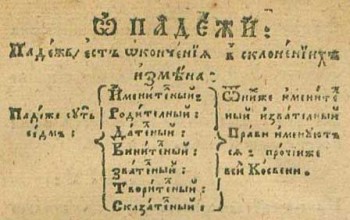 Ѽ ПАДЕ́ЖИ:
Паде́жъ є҆́стъ ѡ҆конче́нїѧ в̾ склоне́нїихъ
и҆змѣ́на:
Паде́жѐ сꙋ́ть се́дмъ:
И҆мени́тє́лный:
Роди́телный:
Да́тє́лный:
Вини́телный:
Зва́телный:
Твори́телный:
Сказа́телный:
Ѿ ни́хже имени́те
лный и҆ зва́телный
Пра́ви и҆менꙋ́ютъ
сѧ: про́тїиже
вси̑ Ко́свени: